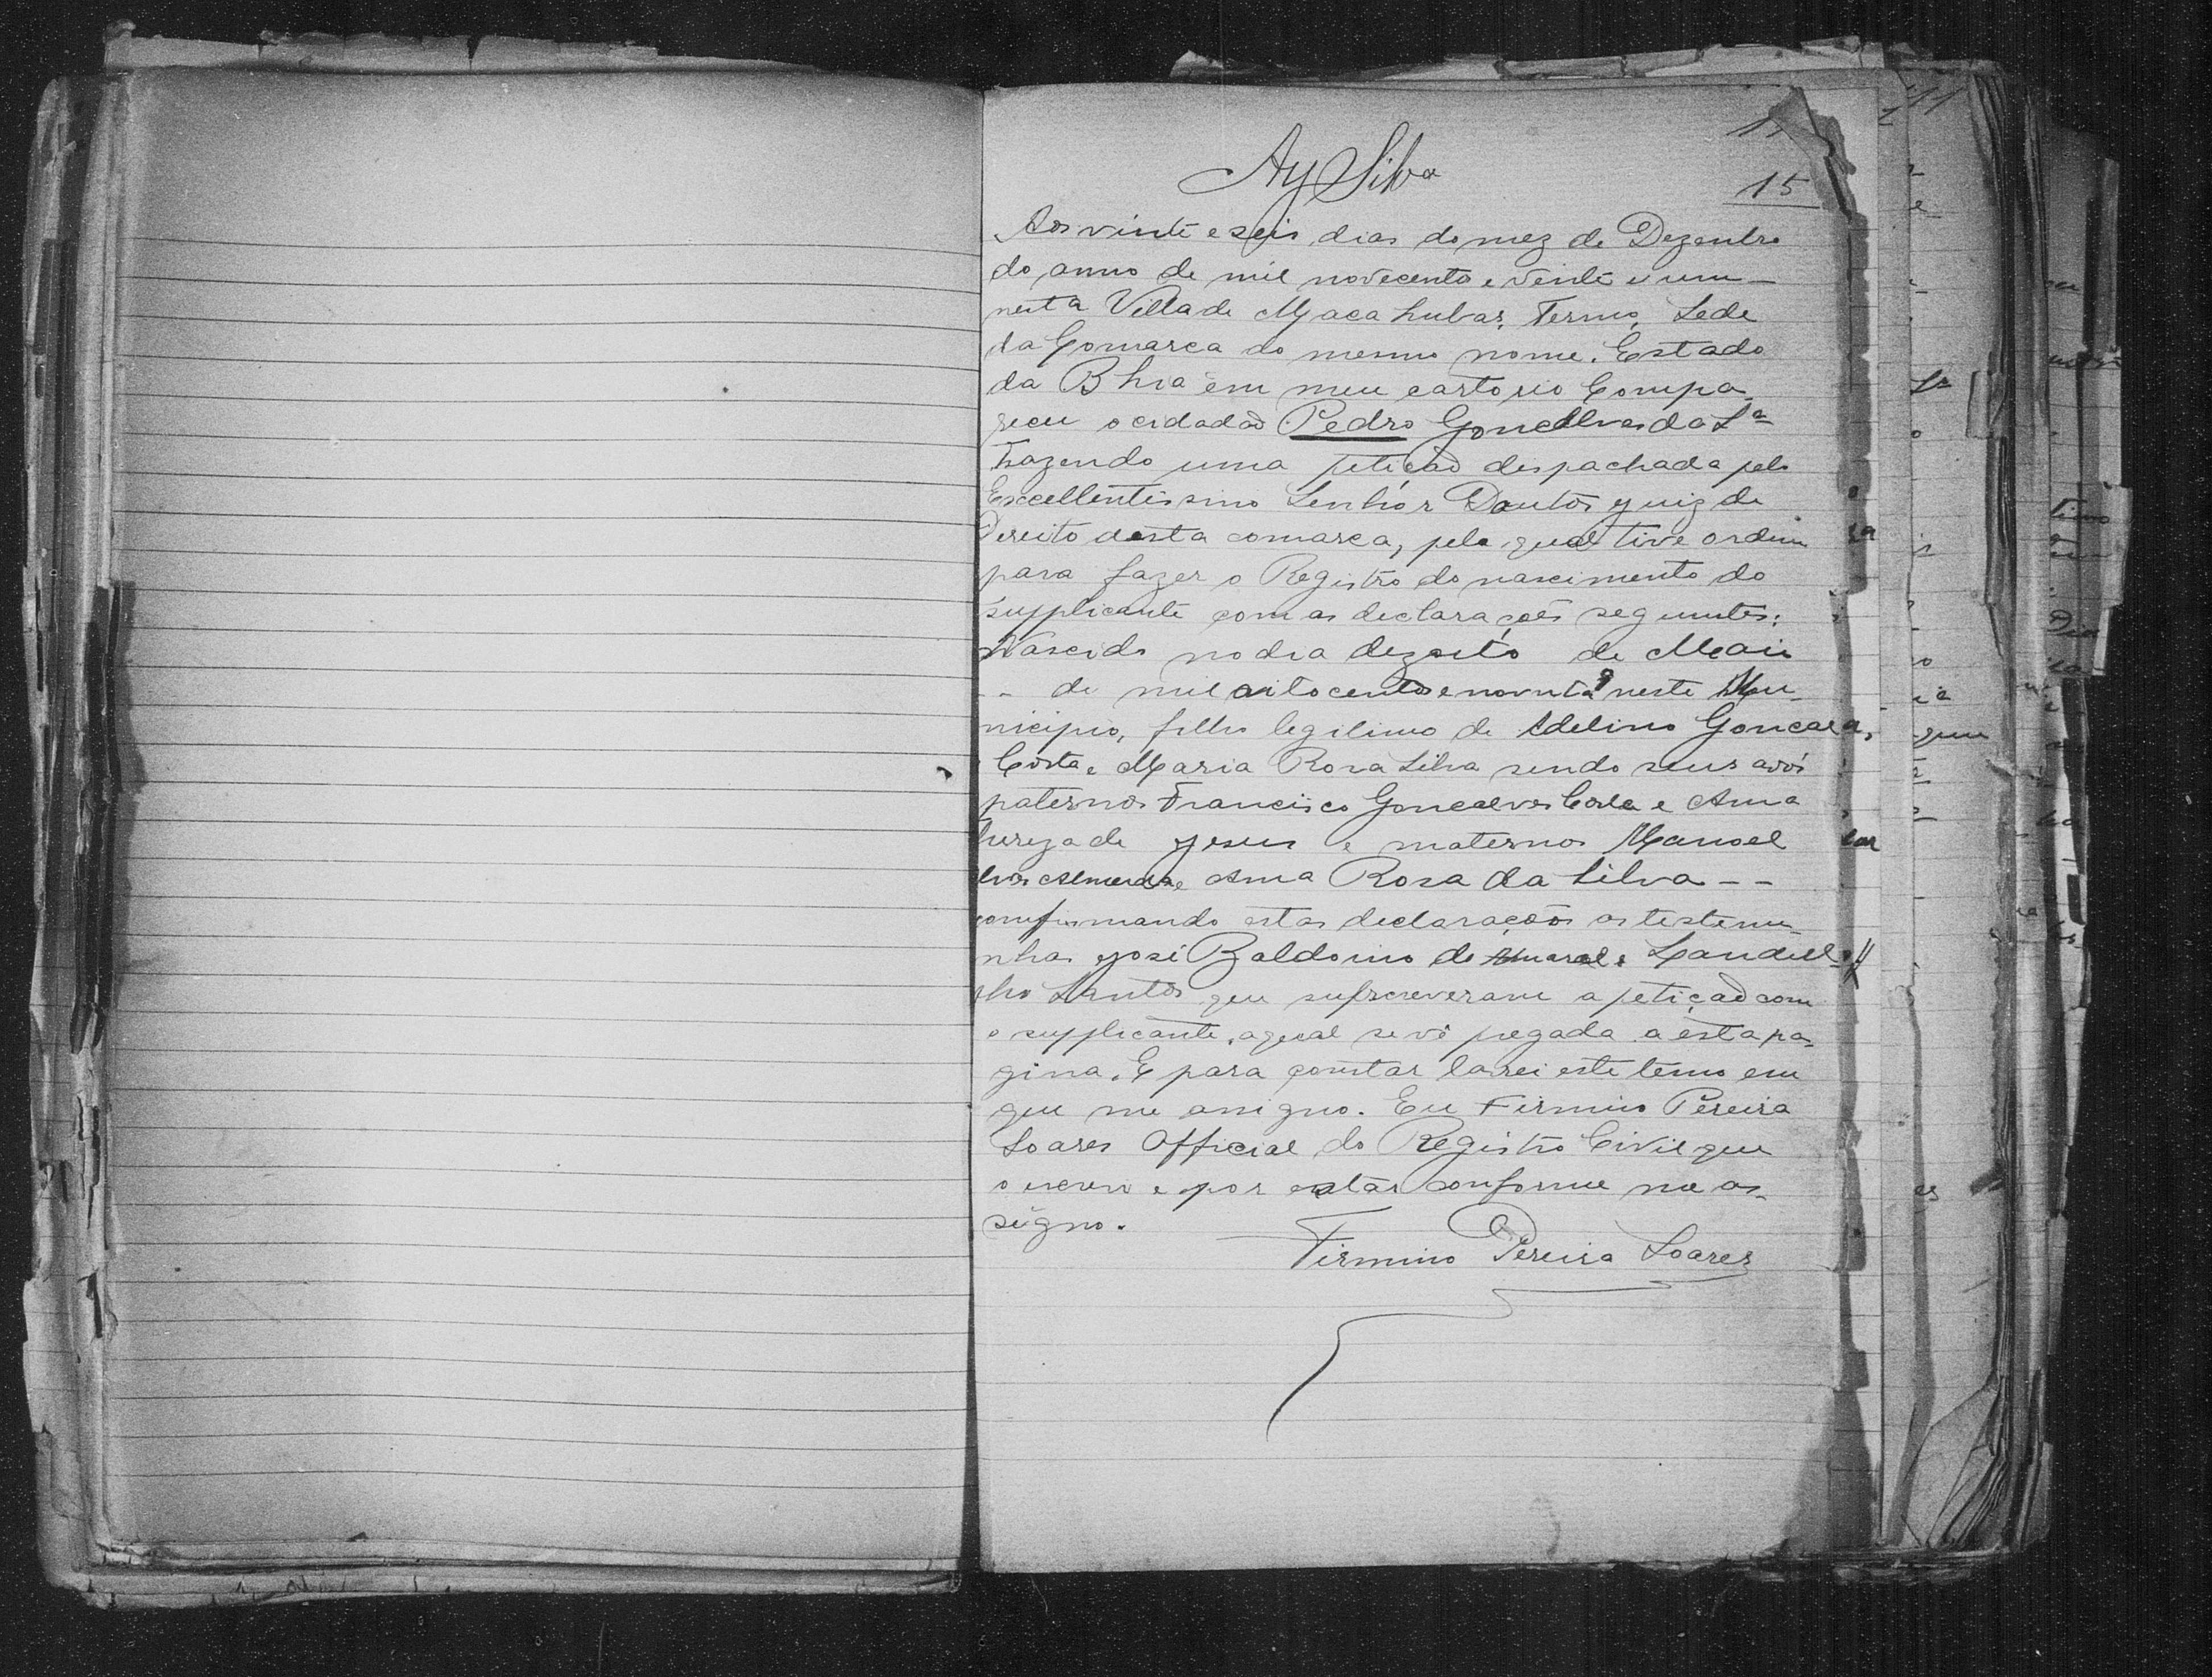 Ay Silva
15
Aos vinte e seis dias do mez de Dezembro
do anno de mil novecento e vinte e um
nesta Villa de Macahubas, Termo, Sede
da Comarca do mesmo nome. Estado
da Bhia em meu cartorio Compa
receu o cidadaõ Pedro Goncalves da Sª
trazendo uma petiçaõ despachada pelo
Excellentissimo Senhór Doutor Juiz de
Direito desta comarca, pela qual tive ordem
para fazer o Registro do nascimento do
supplicante com as declarações seguintes:
Nascido no dia dezoito de Maio
-- de mil oitocentos e noventa 9 neste Mu-
nicipio, filho legitimo de Adelino Goncalª
Costa e Maria Rosa Silva sendo seus avós
paternos Francisco Goncalves Costa e Anna
de Jesus e maternos Manoel
Anna Rosa da Silva --
comfirmando estas declarações as testemu-
nhas José Baldoino do Amaral e
Santos que sufscreveram a petiçaõ com
o supplicante, a qual se vê pregada a esta pa-
gina. E para comstar lavrei este termo em
que me assigno. Eu Firmino Pereira
Soares Official do Registro Civil que
o escrevi e por estár conforme me as-
signo.
Firmino Pereira Soares